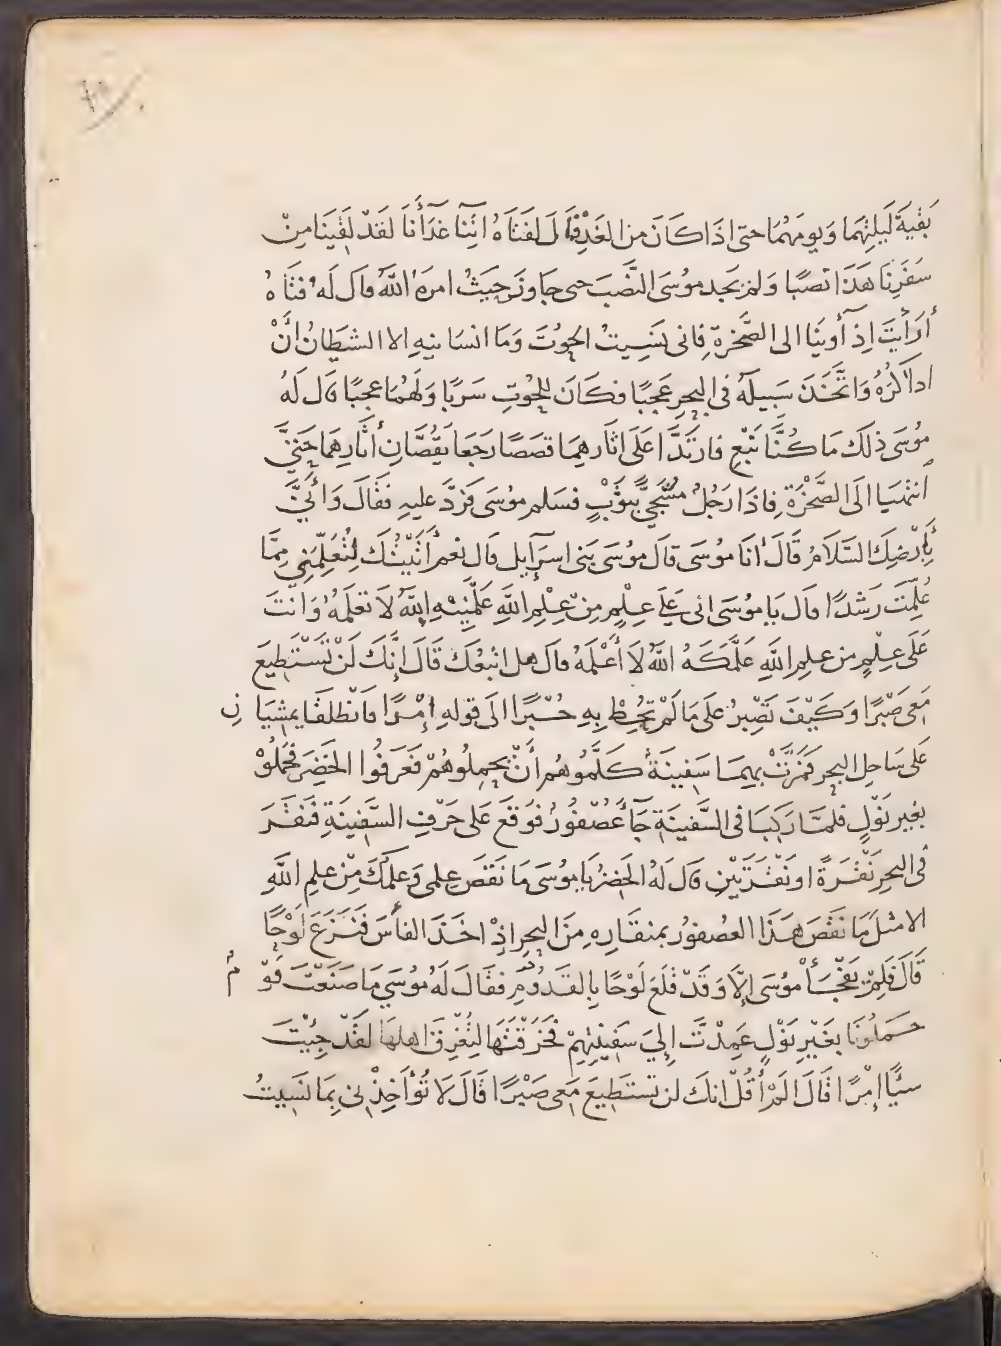 بَقِيَةَ لَيلِتِهَما وَيومَهُمَا حتى اذَا كَانَ من الغَدِ قَالَ لَفَتَاهُ آتِنَا غَدَآءَنَا لَقَدْ لَقِينَا مِنْ
سَفَرِنَا هَذَا نَصَبًا وَلمْ يَجد موُسَى النَّصَبَ حتى جَاوزَ حَيثُ امرَهُ اللَّهُ قال لَه فتَاهُ
أَرَأَيتَ اِذ أَوينَا الى الصَّخرةِ فِانى نَسِيتُ الحُوتَ وَمَا انسَانِيهِ الا الشيطَانُ أَنْ
اذكُرُهُ وَاتَّخَذَ سَبِيلَهُ فى البحرِ عَجَبًا فكَانَ لِلحُوتِ سَرَبًا وَلَهُمَا عجَبًا قال لَهُ
مُوسَى ذلكَ مَا كُنَّا نَبْغِ فارتدَّا عَلَى اثَارهِمَا قصَصًا رَجَعَا يَقُصَّانِ أَثَارِهِمَا حَتىَّ
انتهَيَا الَى الصَّخْرَةِ فِاذَا رَجُلٌ مُسَجًّى بِثَوْبٍ فسَلم مُوسَى فرَدَّ عليهِ فقَالَ وَأَنىَّ
بِأَرْضِكَ السَّلَامُ قَالَ أَنَا مُوسَى قالَ مُوسَى بَنى اسرَآيل قال نعم أَتَيْتُكَ لِتُعَلِّمَنِي مِمَّا
عُلِّمتَ رَشدًا قال يَا مُوسَى انى عَلَى عِلْمٍ مِنْ عِلْمِ اللَّهِ عَلَّمَنِيْهِ اللَّهُ لَا تعلَمَهُ وَانْتَ
عَلَى عِلْمٍ من علمِ اللَّهِ عَلَّمَكَهُ اللَّهُ لَا أَعْلَمَهُ قال هل اتبعُكَ قَالَ إِنَّكَ لَنْ تَسْتَطِيعَ
مَعِى صَبْرًا وَكَيْفَ تَصْبِرُ عَلَى مَا لَمْ تُحِطْ بِهِ خُبْرًا الَى قولهِ اِمْرًا فَانْطلَقَا يمشِيَانِ
عَلَى سَاحلِ البحرِ فمَرَّتْ بهِمَا سَفِينَةٌ كَلَّمُوهُم أَنْ يحمِلُوهُمْ فَعَرفُوا الخَضِرَ فحَملُوْ
بغير نَوْلٍ فلمَّا رَكِبَا فى السَّفينَةِ جَآءَ عُصْفُورٌ فوَقَعَ عَلَى حَرْفِ السَّفِينَةِ فَنَقَرَ
فى البحرِ نَقْرَةً او نَقْرَتَيْنِ قال لَهُ الخَضِرُ يَا مُوسَى مَا نَقَصَ عِلمى وَعلمُكَ مِنْ علم اللَّهِ
الا مثلَ مَا نقصَ هَذَا العصفورُ بمنقارِه مِنَ البحرِ اِذْ اخَذَ الفأسَ فَنَزَعَ لَوْحًا
قَالَ فَلمْ يَفْجَأْ مُوسَى اِلَّا وَقَدْ قَلَعَ لَوْحًا بِالقَدُومِ فقَالَ لَهُ مُوسَى مَا صَنَعْتَ قوْمٌ
حَمَلُونَا بغَيْرِ نَوْلٍ عَمِدْتَ اِلىَ سَفِينَتِهِمْ فَخَرَقْتَهَا لِتُغْرِقَ اهلهَا لَقَدْ جِئْتَ
شيًّا اِمْرًا قَالَ الَمْ أَقُلْ انكَ لن تَسْتَطِيعَ مَعِى صَبْرًا قَالَ لَا تُؤَاخِذْنى بِمَا نَسِيتُ